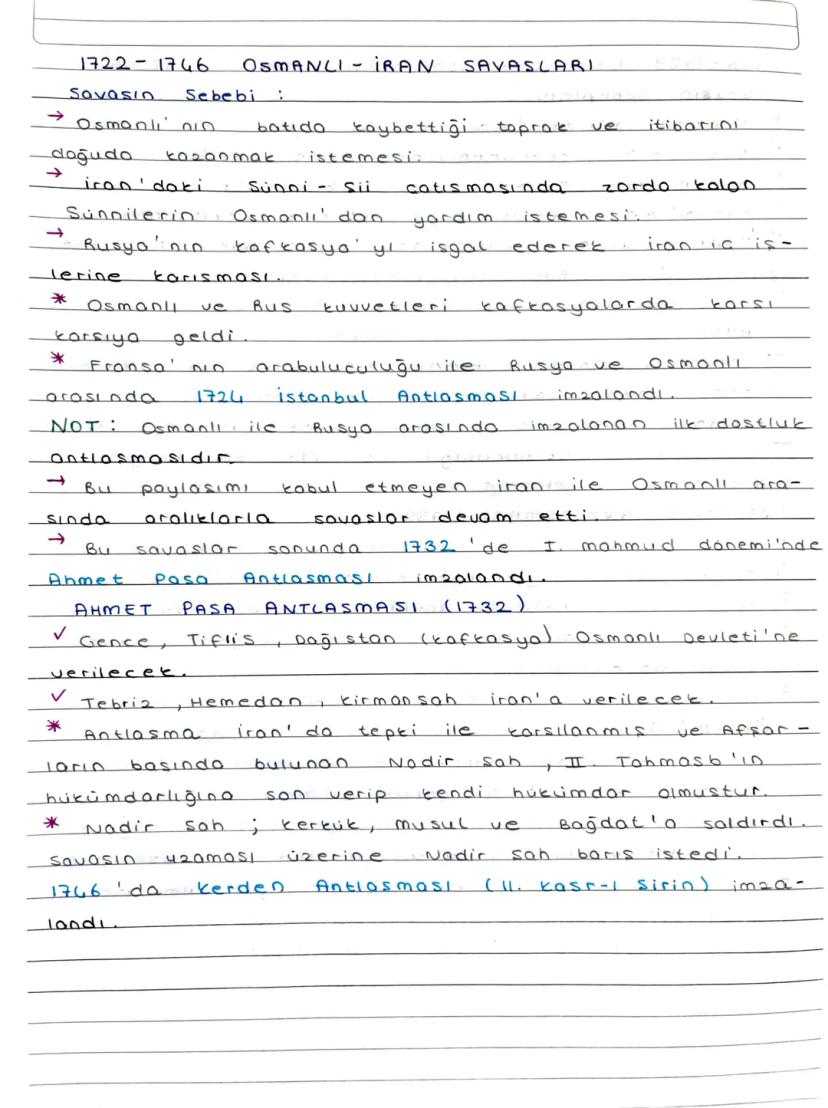 1722 - 1746 OSMANLI - İRAN SAVASLARI
Savasın Sebebi :
→ Osmanlı'nın batıda kaybettiği toprak ve itibarını
doğuda kazanmak istemesi.
→ İran'daki Sünni - Sii catısmasında zorda kalan
Sünnilerin Osmanlı'dan yardım istemesi.
→ Rusya'nın Kafkasya'yı isgal ederek iran ic is-
lerine karısması.
* Osmanlı ve Rus kuvvetleri Kafkasyalarda karsı
karsıya geldi.
* Fransa'nın arabuluculuğu ile Rusya ve Osmanlı
arasında 1724 istanbul Antlasması imzalandı.
NOT : Osmanlı ile Rusya arasında imzalanan ilk dostluk
antlasmasıdır.
→ Bu paylasımı kabul etmeyen iran ile Osmanlı ara-
sında aralıklarla savaslar devam etti.
→ Bu savaslar sonunda 1732 'de I. mahmud dönemi'nde
Ahmet Pasa Antlasması imzalandı.
AHMET PASA ANTLASMASI (1732)
✓ Gence, Tiflis, Dağıstan (Kafkasya) Osmanlı Devleti'ne
verilecek.
✓ Tebriz, Hemedan, Kirmansah iran'a verilecek.
* Antlasma iran'da tepki ile karsılanmıs ve Afsar -
ların basında bulunan Nadir Sah, II. Tahmasb'ın
hükümdarlığına son verip kendi hükümdar olmustur.
* Nadir Sah ; Kerkük, musul ve Bağdat'a saldırdı.
Savasın uzaması üzerine Nadir Sah barıs istedi.
1746 'da Kerden Antlasması (II. Kasr-ı Sirin) imza-
landı.